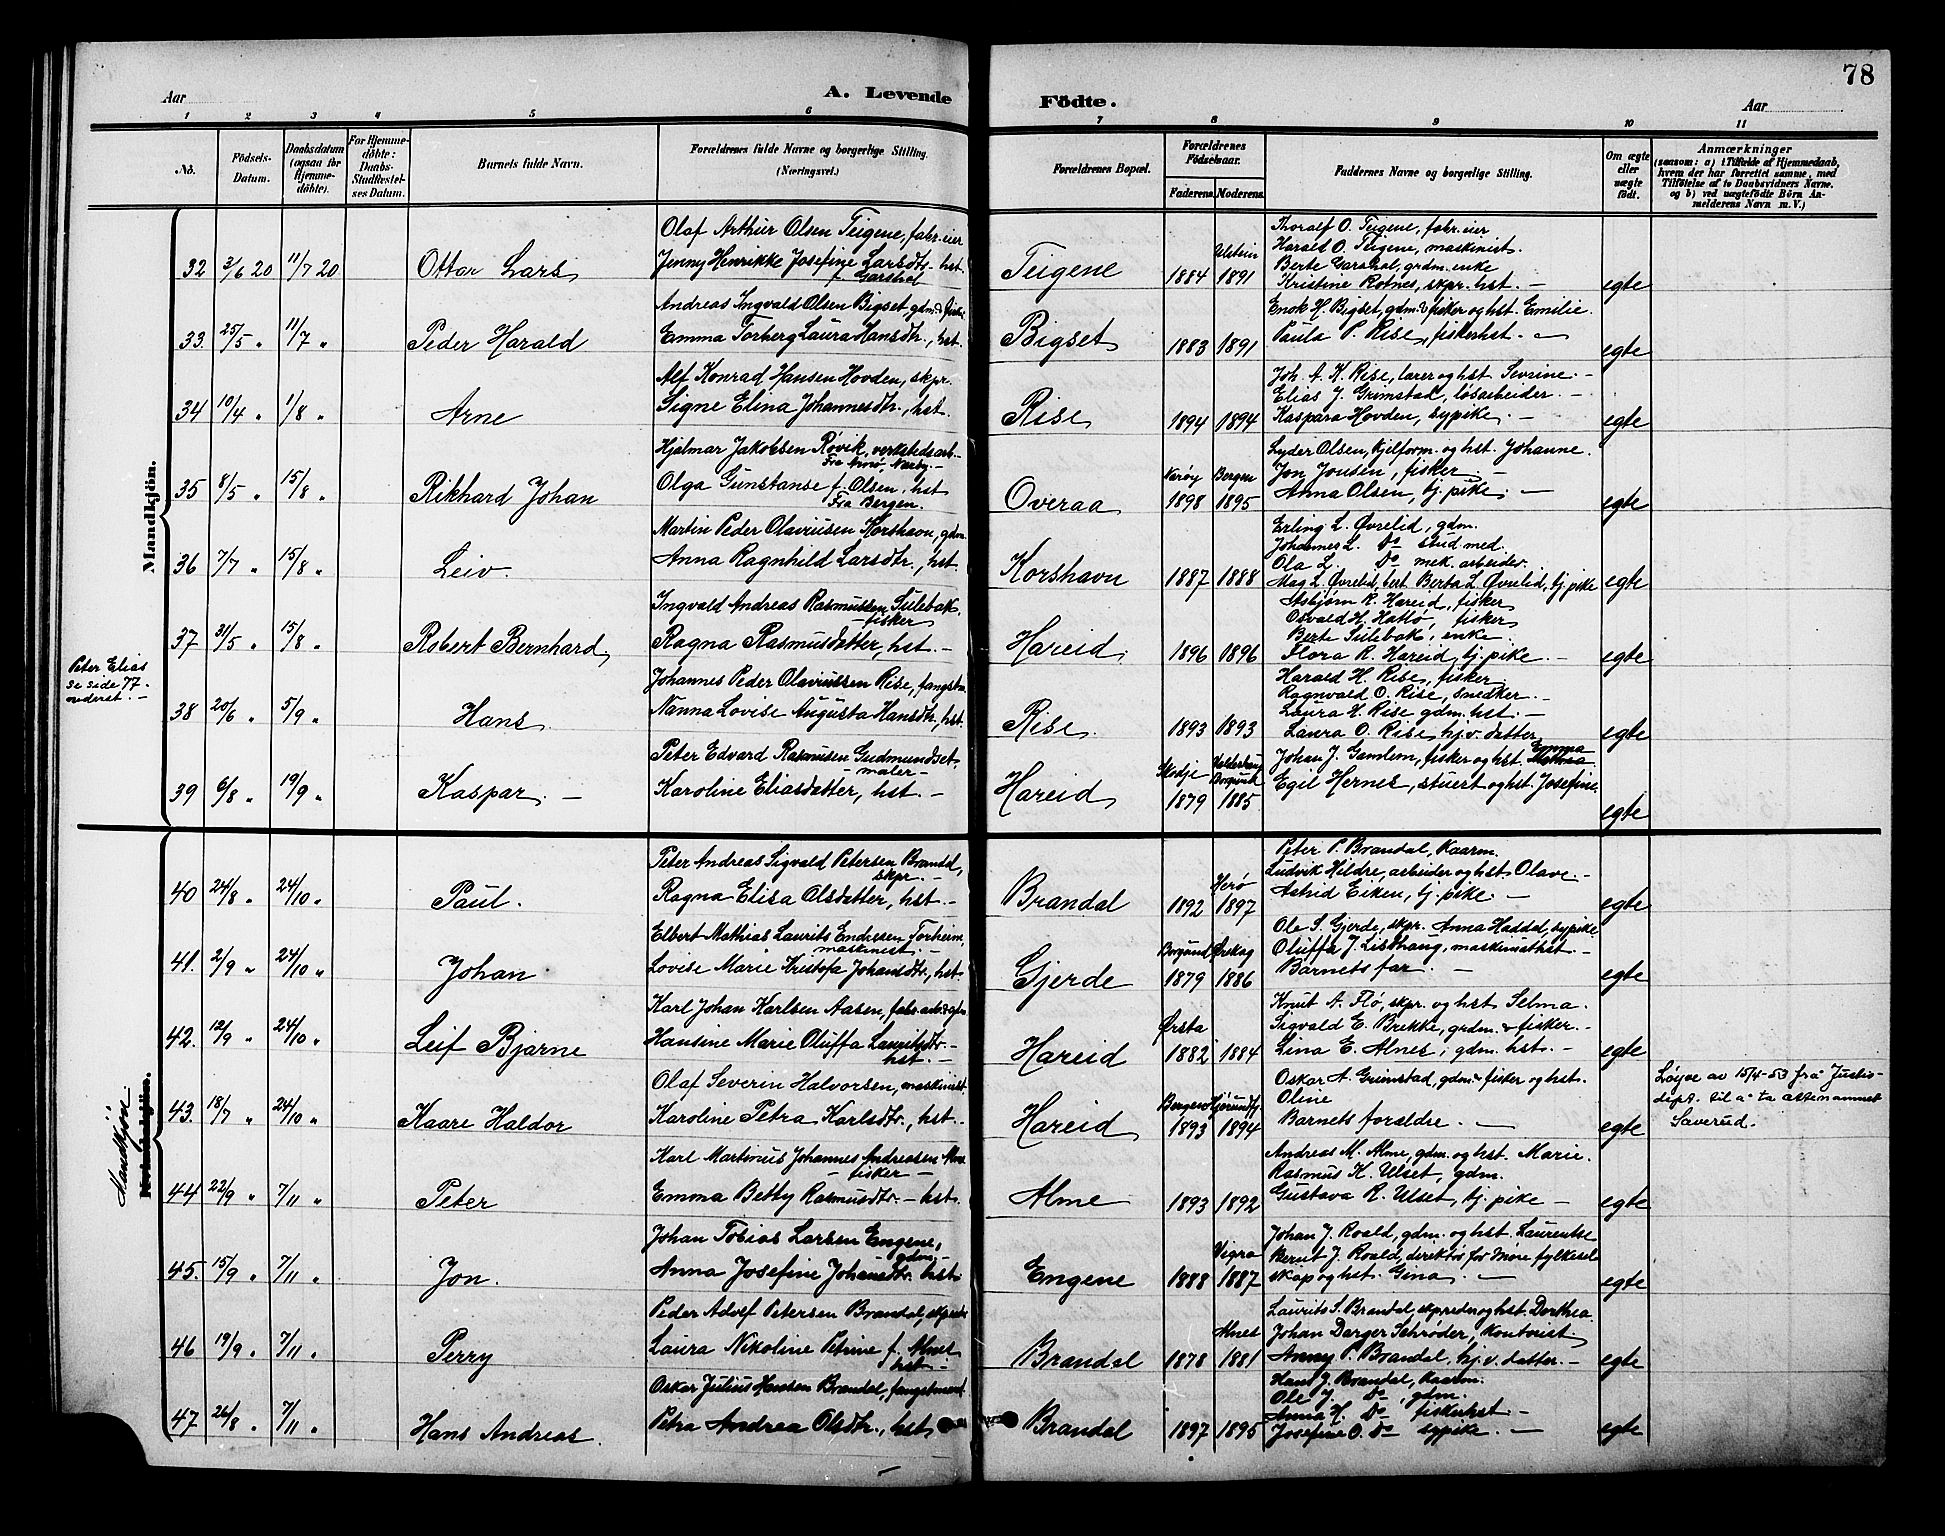 78
Aar
A. Levende
Födte.
Aar
1 2 3 4 5 6 7 8 9 10 11
No.
Födsels-Datum.
Daabsdatum (ogsaa for Hjemme-döbte).
For Hjemme-döbte: Daabs-Stadfæstel-ses Datum.
Barnets fulde Navn.
Forældrenes fulde Navne og borgerlige Stilling. (Næringsvei.)
Forældrenes Bopæl.
Forældrenes Födselsaar.
Faderens. Moderens.
Faddernes Navne og borgerlige Stilling.
Om ægte eller uægte födt.
Anmærkninger
(saasom: a) i Tilfælde af Hjemmedaab, hvem der har forrettet samme, med Tilföielse af to Daabsvidners Navne, og b) ved uægtefödte Börn An-melderens Navn m. V.)
Mandkjön.
32 3/6 20 11/7 20 Ottar Lars
Olaf Arthur Olsen Teigene, fabr.eier
Jenny Henrikke Josefine Larsdtr. hst.
f. Garshol
Teigene 1884 Ulstein 1891
Thoralf O. Teigene, fabr.eier
Harald O. Teigene, maskinist.
Berte Garshol, grdm. enke
Kristine Rotnes, skpr. hst. —
egte
33. 25/5 " 11/7 " Peder Harald
Andreas Ingvald Olsen Bigset, gdm. & fisker
Emma Torberg Laura Hansdtr., hst.
Bigset 1883 1891
Enok H. Bigset, gdm. & fisker og hst. Emilie.
Paula P. Rise, fiskerhst. —
egte
34 10/4 " 1/8 " Arne
Alf Konrad Hansen Hovden, skpr.
Signe Elina Johannesdtr., hst.
Rise 1894 1894
Joh. A. K. Rise, lærer og hst. Sevrine. —
Elias J. Grimstad, løsarbeider. —
Kaspara Hovden, sypike. —
egte
35 8/5 " 15/8 " Rikhard Johan
Hjalmar Jakobsen Røvik, verkstedsarb. —
Olga Gunstanse f. Olsen, hst
Fra Bergen.
Overaa 1898 Bergen 1895
Lyder Olsen, kjelform. og hst. Johanne.
Jon Jonsen, fisker. —
Anna Olsen, tj. pike. —
egte
36 7/7 " 15/8 " Leiv.
Martin Peder Olaviusen Korshavn, gdm.
Anna Ragnhild Larsdtr., hst.
Korshavn 1887 1888
Erling L. Øvrelid, gdm.
Johannes L. Do stud. med.
Ola L. Do mek. arbeider.
Mag L. Øvrelid, Berta L. Øvrelid, tj. pike
egte
37 31/5 " 15/8 " Robert Bernhard.
Ingvald Andreas Rasmussen Sulebak,
fisker
Ragna Rasmusdatter, hst. —
Hareid. 1896 1896
Asbjørn R. Hareid, fisker
Osvald H. Hattø, fisker
Berte Sulebak, enke.
Flora R. Hareid, tj. pike. —
egte
Peter Elias
se side 77.
nederst. —
38 20/6 " 5/9 " Hans.
Johannes Peder Olaviussen Rise, fangstm.
Nanna Lovise Augusta Hansdtr., hst.
Rise. 1893 1893
Harald H. Rise, fisker
Ragnvald O. Rise, snedker. —
Laura H. Rise gdm. hst. —
Laura O. Rise, hj.v. datter
egte
39 6/8 " 19/9 " Kaspar. —
Peter Edvard Rasmusen Gudmundset.
— maler —
Karoline Eliasdatter, hst. —
Hareid Skodje 1879 Borgund 1885
Johan J. Gamlem, fisker og hst. Emma
Egil Hernes, stuert og hst. Josefine.
egte
Mandkjön
Kvindekjön.
40 24/8 " 24/10 " Paul.
Peter Andreas Sigvald Petersen Brandal,
skpr. —
Ragna Elisa Olsdatter, hst. —
Brandal 1892 Herø 1897
Peter P. Brandal, Kaarm.
Ludvik Hildre, arbeider og hst. Olave. —
Astrid Eiken, tj. pike. —
egte
41. 2/9 " 24/10 " Johan
Elbert Mathias Laurits Endresen Torheim,
maskinist —
Lovise Marie Kristofa Johansdtr., hst
Gjerde Borgund 1879 Ørskog 1886
Ole S. Gjerde, skpr. Anna Haddal, sypike
Oluffa J. Listhaug, maskinisthst —
Barnets far. —
egte
42. 12/9 " 24/10 " Leif Bjarne
Karl Johan Karlsen Aasen,
Hansine Marie Oluffa Lauritsdtr. —
hst. —
Hareid Ørsta 1882 1884
Knut A. Flø, skpr. og hst. Selma.
Sigvald E. Brekke, grdm. & fisker. —
Lina E. Alnes, gdm. hst. —
egte
43. 18/7 " 24/10 " Kaare Haldor
Olaf Severin Halvorsen, maskinist.
Karoline Petra Karlsdtr., hst. —
Hareid Bergen 1893 Hjørundfj. 1894
Oskar A. Grimstad, gdm. & fisker og hst.
Oline
Barnets forældre. —
egte
Løyve av 15/4-53 frå Justis-
dept. til å ta ættenamnet
Saverud.
44 22/9 " 7/11 " Peter
Karl Martinus Johannes Andreasen Alme
fisker —
Emma Betty Rasmusdtr. — hst.
Alme 1893 1892
Andreas M. Alme, gdm. og hst. Marie.
Rasmus K. Ulset, gdm.
Gustava R. Ulset, tj. pike —
egte
45. 15/9 " 7/11 " Jon.
Johan Tobias Larsen Engene,
gdm. —
Anna Josefine Johansdtr. hst.
Engene 1888 Vigra 1887
Johan J. Roald, gdm. og hst. Laurentse
Bernt J. Roald, direktør for Møre fylkessel
skap og hst. Gina. —
egte
46 19/9 " 7/11 " Perry
Peder Adolf Petersen Brandal, skpsreder
Laura Nikoline Petrine f. Alnes
hst. —
Brandal 1878 Alnes 1881
Laurits S. Brandal, skpsreder og hst. Dorthea
Johan Darger Schrøder, kontorist
Anny P. Brandal, hj.v. datter. —
egte
47 26/8 " 7/11 " Hans Andreas.
Oskar Julius Hansen Brandal, fangstmand
Petra Andrea Olsdtr., hst
Brandal 1897 1895
Hans J. Brandal, Kaarm.
Ole J. Do, gdm.
Anna H. Do fiskerhst. —
Josefine O. Do sypike. —
egte